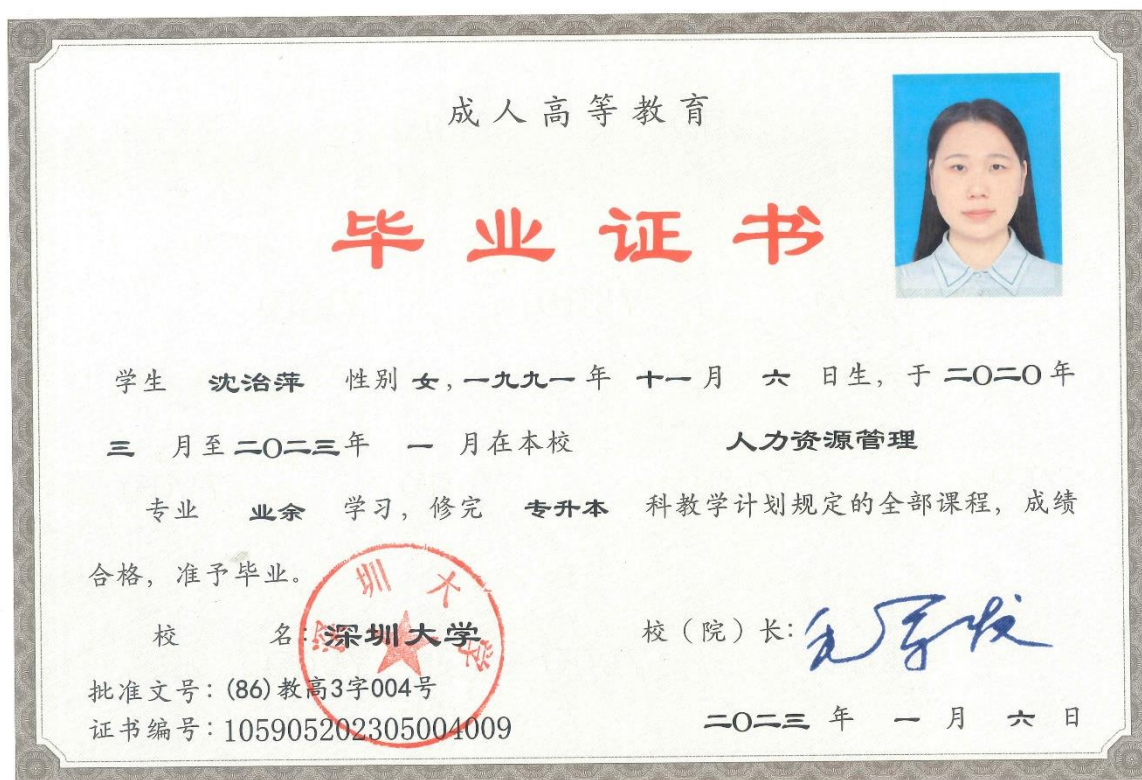 成人高等教育
毕业证书
学生 沈治萍 性别 女,一九九一年 十一月 六 日生，于二〇二〇年
三 月至二〇二三年 一 月在本校 人力资源管理
专业 业余 学习，修完 专升本 科教学计划规定的全部课程，成绩
合格，准予毕业。
校 名:深圳大学
深圳大学
校（院）长: 毛军发
批准文号：(86)教高3字004号
证书编号：105905202305004009
二〇二三 年 一 月 六 日